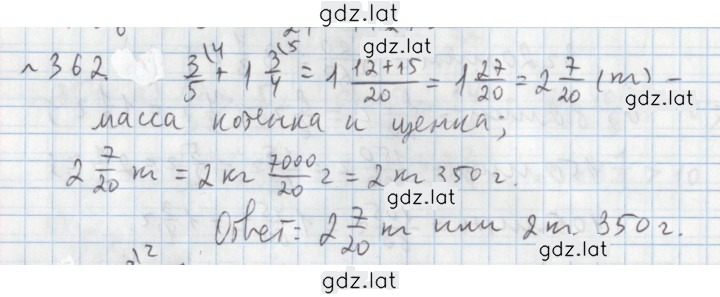 gdz.lat
№ 362 3/5\4 + 1 3/4\5 = 1 12+15/20 = 1 27/20 = 2 7/20 (кг) –
gdz.lat
gdz.lat
масса котенка и щенка;
2 7/20 кг = 2 кг 7000/20 г = 2 кг 350 г.
gdz.lat
Ответ: 2 7/20 кг или 2 кг 350 г.
gdz.lat
gdz.lat